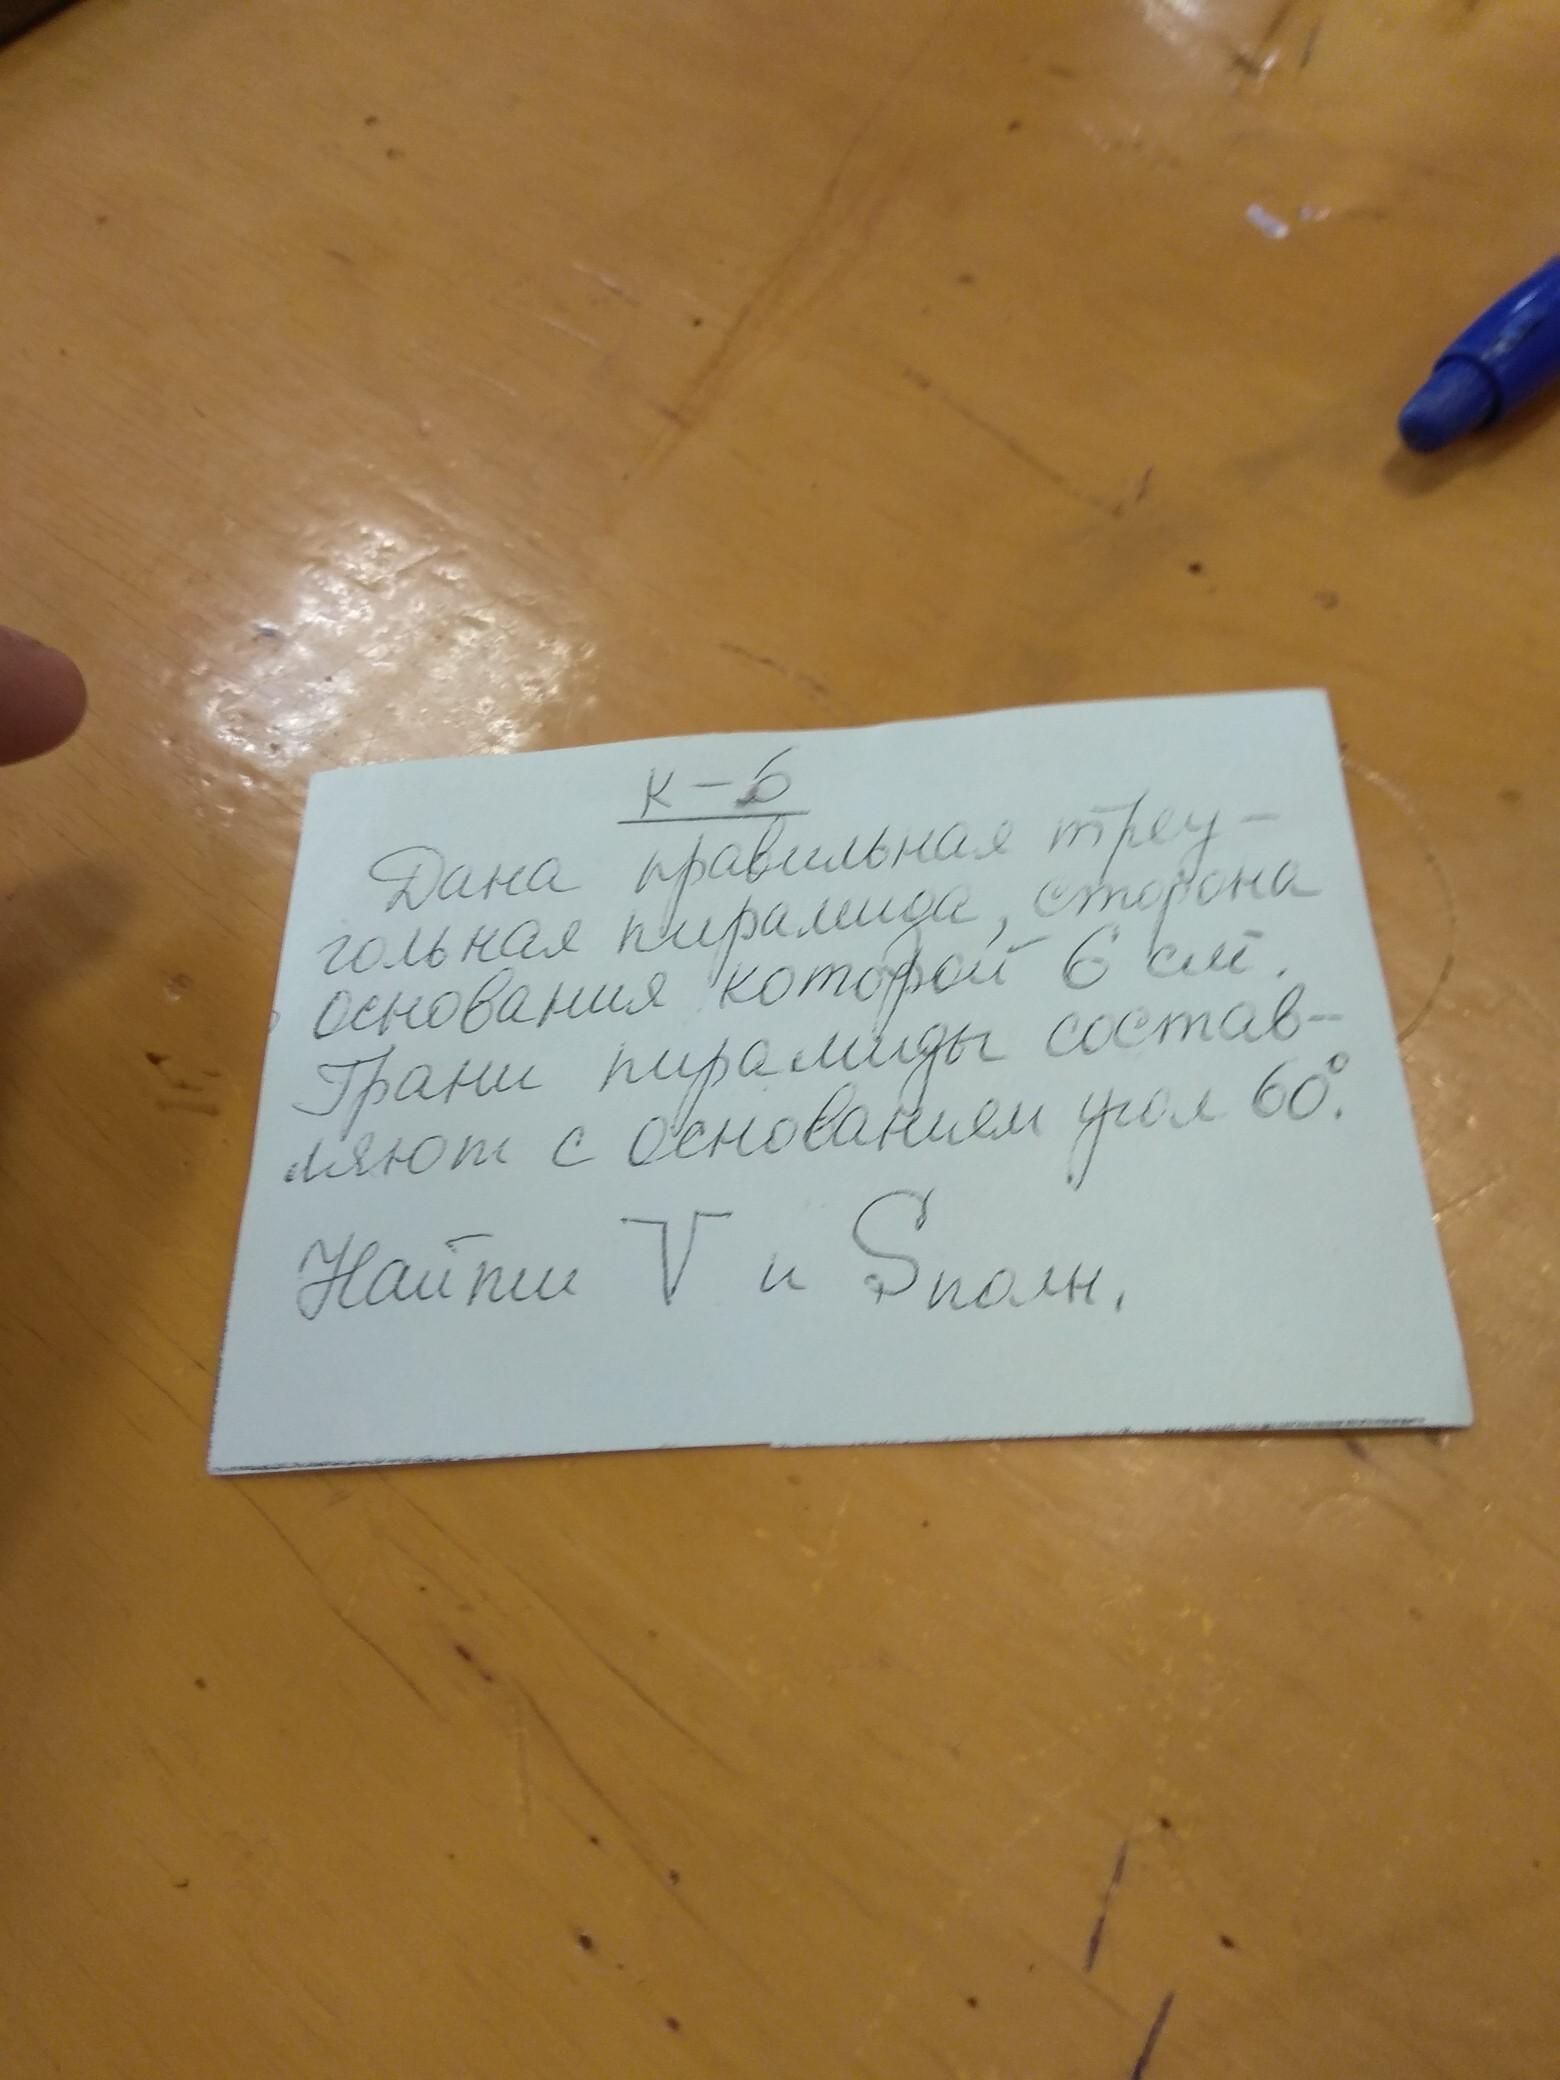 К-6
Дана правильная треу-
гольная пирамида, сторона
основания которой 6 см.
Грани пирамиды состав-
ляют с основанием угол 60°.
Найти V и Sполн.